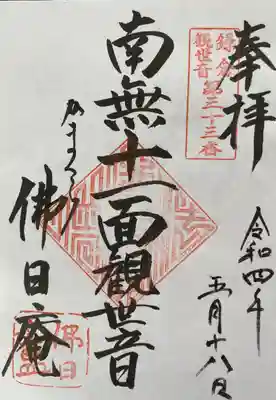 奉拝
鎌倉
観世音第三十三番
令和四年
五月十八日
南無十一面観世音
かまくら
佛日庵
佛日